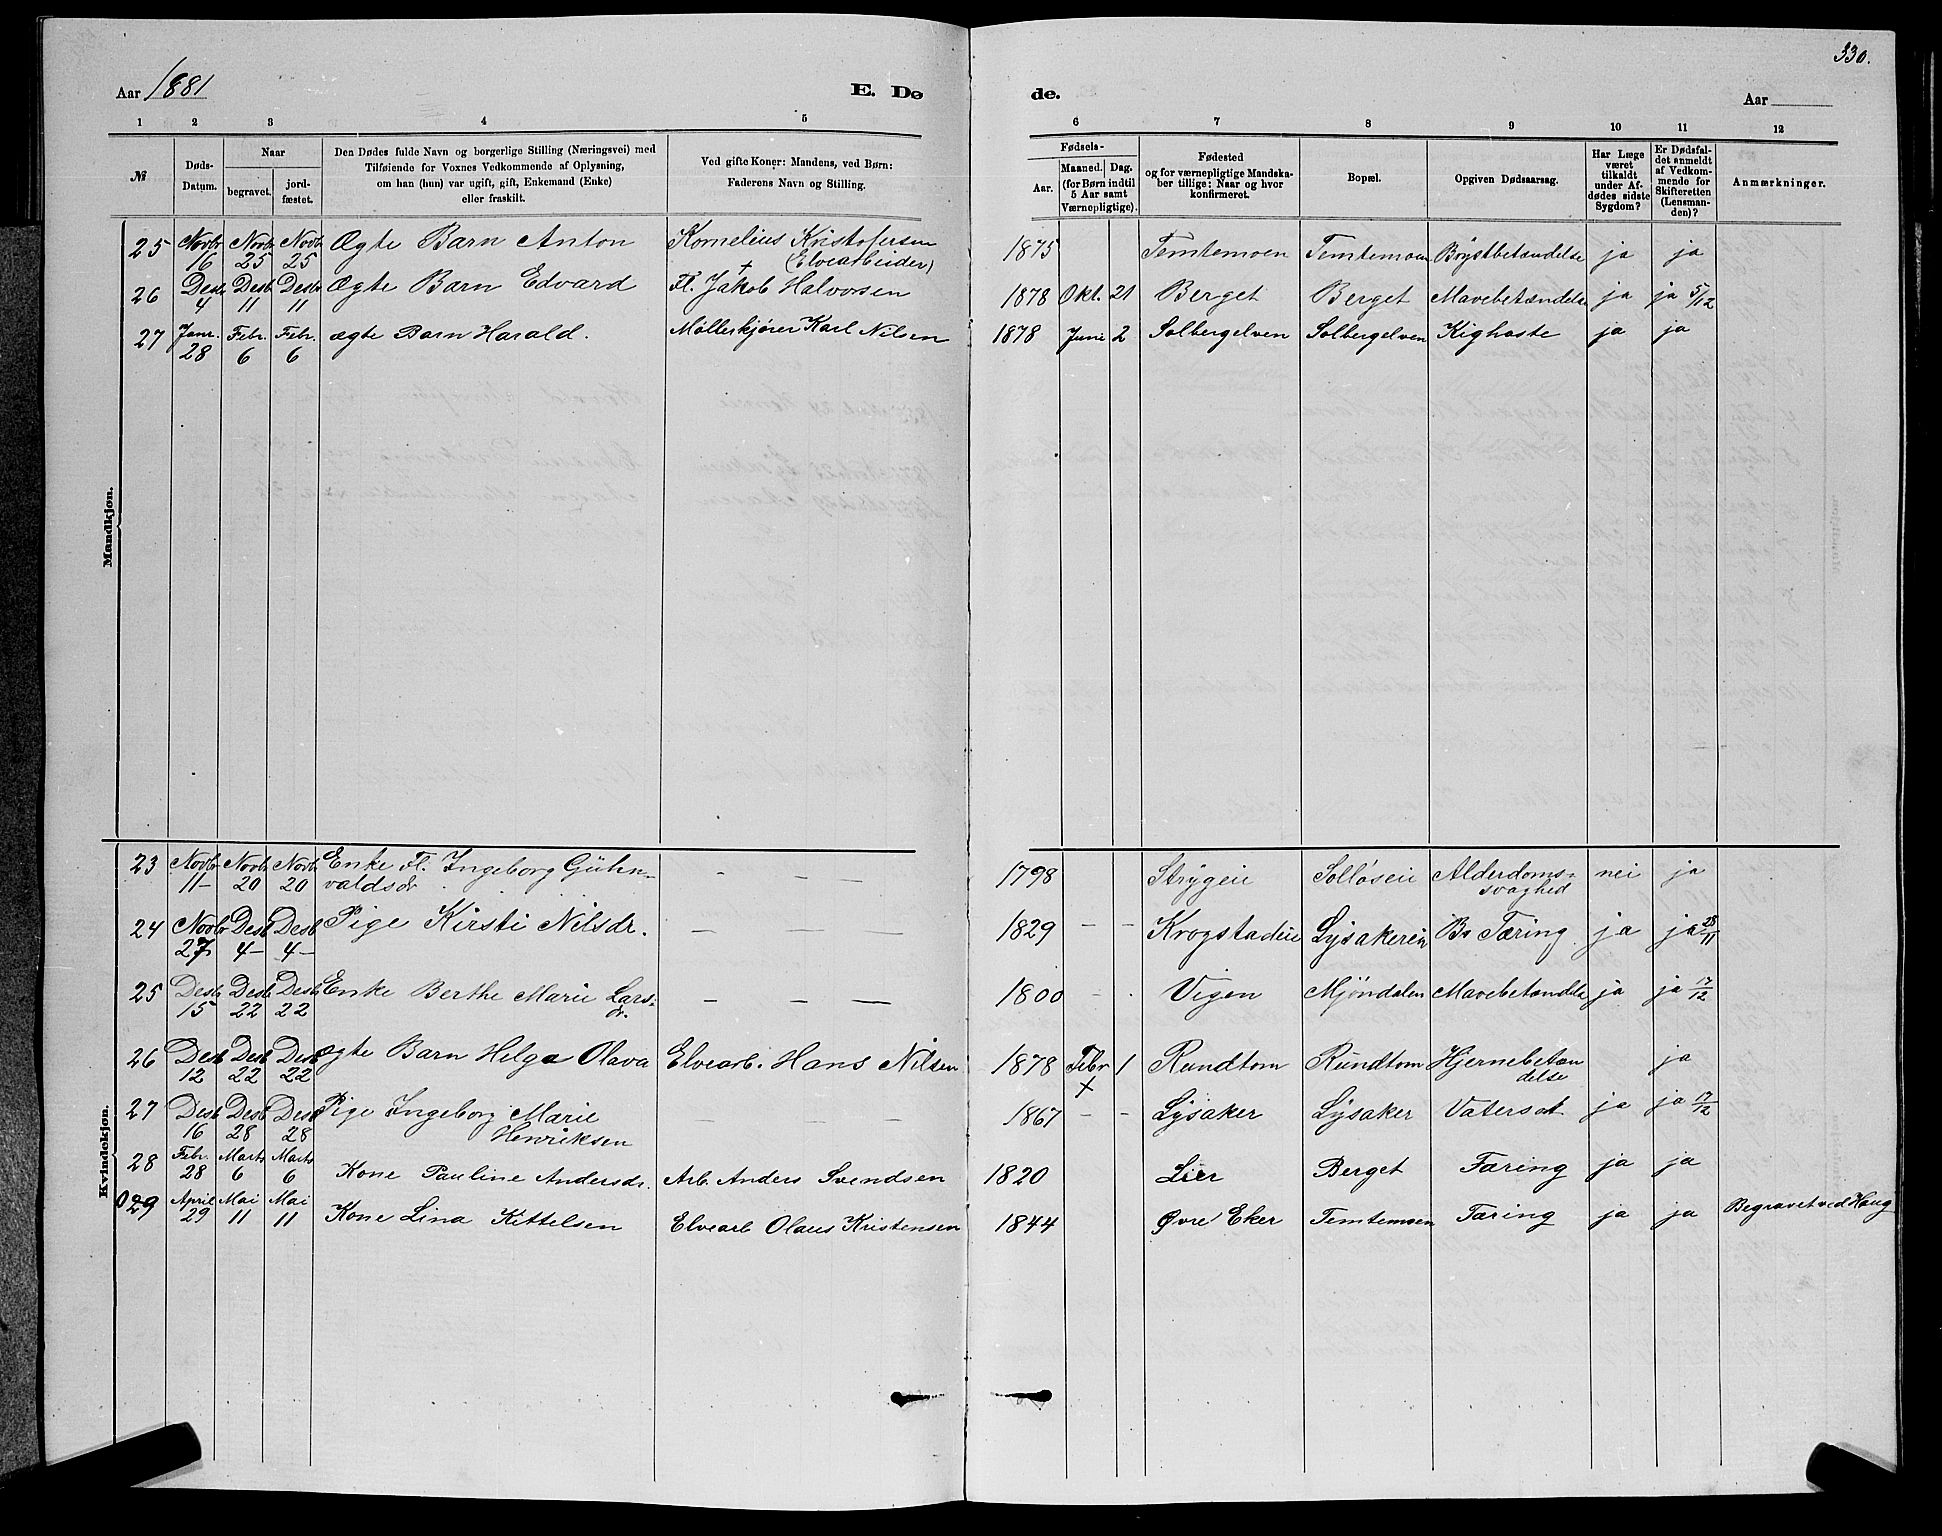 330.
Aar 1881 E. Dø de. Aar
1 2 3 4 5 6 7 8 9 10 11 12
№ Døds-Datum. Naar begravet. jordfæstet. Den Dødes fulde Navn og borgerlige Stilling (Næringsvei) med Tilføiende for Voxnes Vedkommende af Oplysning, om han (hun) var ugift, gift, Enkemand (Enke) eller fraskilt. Ved gifte Koner: Mandens, ved Børn: Faderens Navn og Stilling. Fødsels- Aar. Maaned. Dag. (for Børn indtil 5 Aar samt Værnepligtige). Fødested og for værnepligtige Mandskaber tillige: Naar og hvor konfirmeret. Bopæl. Opgiven Dødsaarsag. Har Læge været tilkaldt under Afdødes sidste Sygdom? Er Dødsfaldet anmeldt af Vedkommende for Skifteretten (Lensmanden)? Anmærkninger.
Mandkjøn.
25 Novbr 16 Novbr 25 Novbr 25 Ægte Barn Anton Kornelius Kristofersen (Elvearbeider) 1875 Temtemoen Temtemoen Brystbetændelse ja ja
26 Desbr 4 Desbr 11 Desbr 11 Ægte Barn Edvard Fl. Jakob Halvorsen 1878 Okt. 21 Berget Berget Mavebetændelse ja ja 5/12
27 Janr. 28 Febr. 6 Febr. 6 ægte Barn Harald. Møllerkjører Karl Nilsen 1878 Juni 2 Solbergelven Solbergelven Kighoste ja ja
Kvindekjøn.
23 Novbr 11 – Novbr 20 Novbr 20 Enke Fl. Ingeborg Guhnvaldsdr - — — 1798 Strygeie Solløseie Alderdomssvaghed nei ja
24 Novbr 27 Desb 4 – Desb 4 – Pige Kirsti Nilsdr. — — — 1829 – – Krogstadeie Lysakereie Br Tæring ja ja 28/11
25 Desbr 15 Desb 22 Desb 22 Enke Berthe Marie Larsdr. — — — 1800 - - Vigen Mjöndalen Mavebetændelse ja ja 17/12
26 Desb 12 Desb 22 Desb 22 ægte Barn Helga Olava Elvearb. Hans Nilsen 1878 Febr 1 Rundtom Rundtom Hjernebetændelse ja
27 Desb 16 Desb 28 Desb 28 Pige Ingeborg Marie Henriksen — — — 1867 – – Lysaker Lysaker Vatersot ja ja 17/12
28 Febr. 28 Marts 6 Marts 6 Kone Pauline Andersdr. Arb. Anders Svendsen 1820 Lier Berget Tæring ja ja
029 April 29 Mai 11 Mai 11 Kone Lina Kittelsen Elvearb Olaus Kristensen 1844 Øvre Eker Temtemoen Tæring ja ja Begravet ved Haug